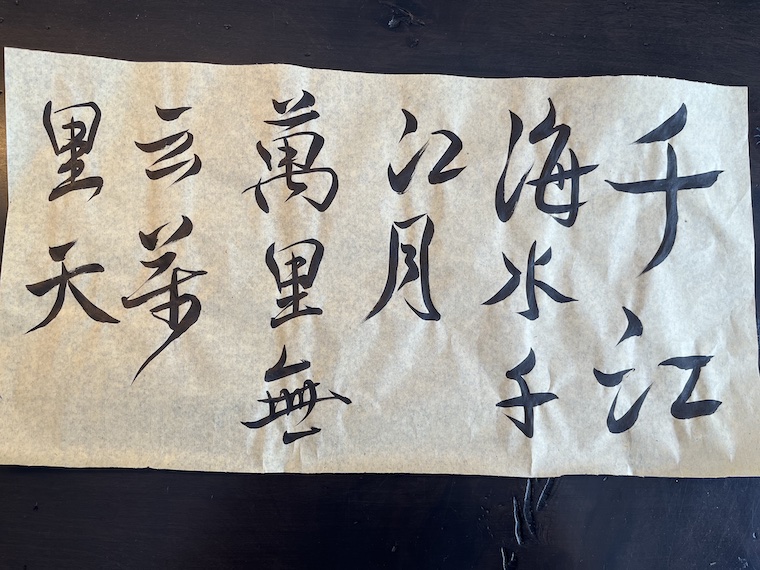 千江
海水千
江月
萬里無
云萬
里天